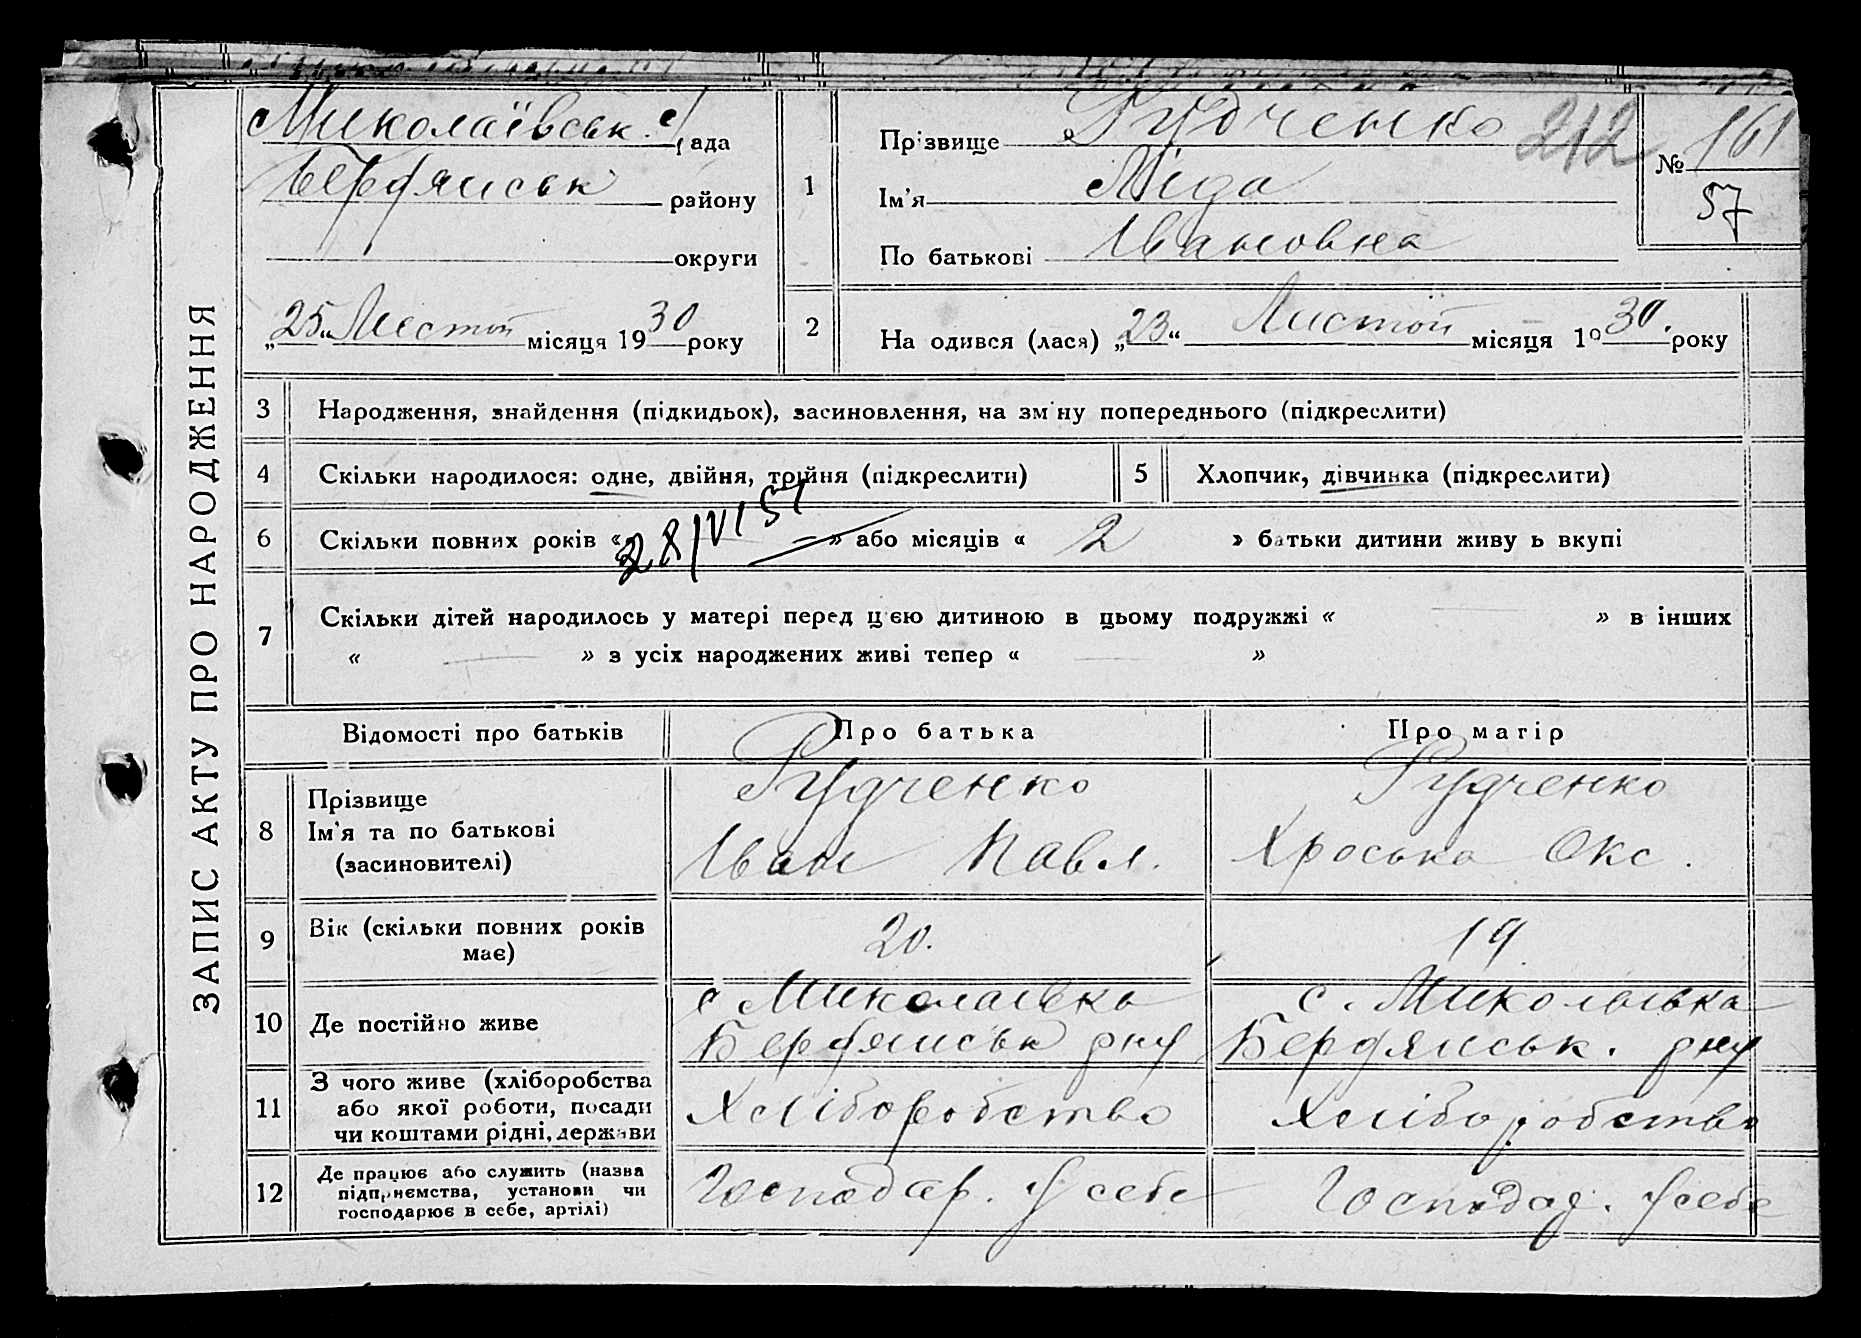 ЗАПИС АКТУ ПРО НАРОДЖЕННЯ
Миколаївськ. с/рада
Бердянськ району
округи
„25“ Листоп місяця 1930 року
1
Прізвище Рудченко
Ім'я Ліда
По батькові Івановна
212
№ 161
57
2
На одився (лася) „23“ Листоп місяця 1930. року
3 Народження, знайдення (підкидьок), засиновлення, на зміну попереднього (підкреслити)
4 Скільки народилося: одне, двійня, трійня (підкреслити)
5 Хлопчик, дівчинка (підкреслити)
6 Скільки повних років « — » або місяців « 2 » батьки дитини живу ь вкупі
28/VI 57
7 Скільки дітей народилось у матері перед цією дитиною в цьому подружжі « — » в інших
« — » з усіх народжених живі тепер « — »
Відомості про батьків
Про батька
Про матір
8 Прізвище
Ім'я та по батькові
(засиновителі)
Рудченко
Іван Павл.
Рудченко
Хроська Окс.
9 Вік (скільки повних років
має)
20.
19
10 Де постійно живе
с Миколаївка
Бердянськ рну
с. Миколаївка
Бердянськ. рну
11 З чого живе (хліборобства
або якої роботи, посади
чи коштами рідні, держави
Хліборобство
Хліборобство
12 Де працює або служить (назва
підприємства, установи чи
господарює в себе, артілі)
Господар. у себе
Господар. у себе